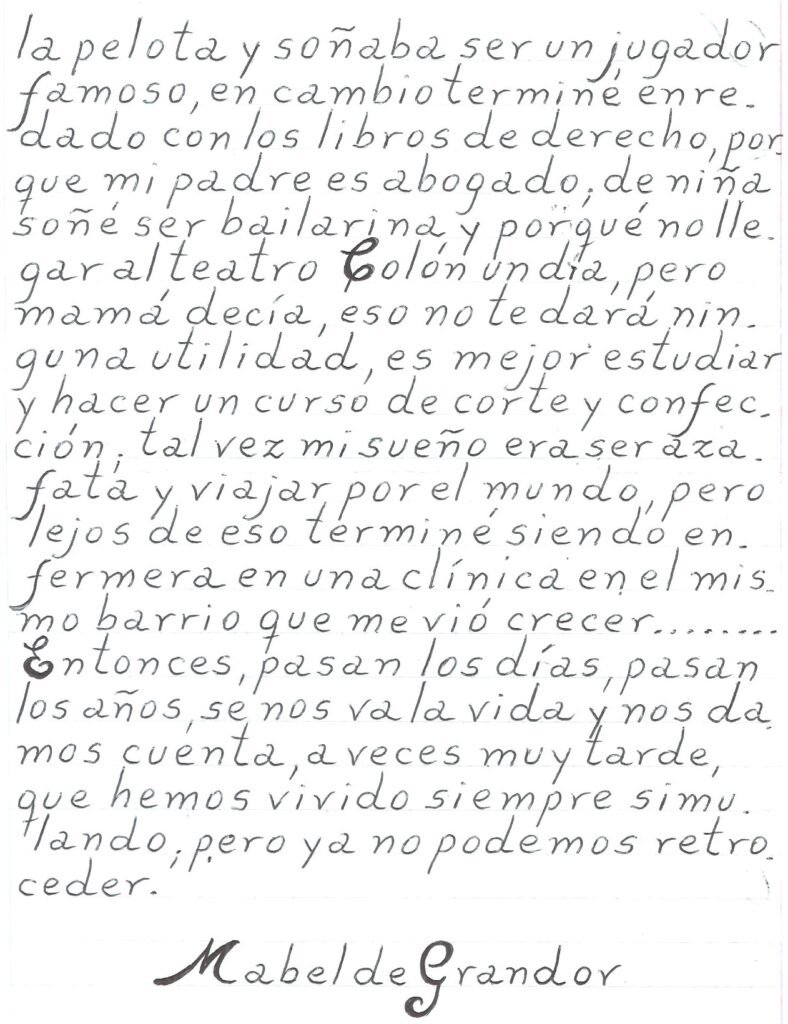 la pelota y soñaba ser un jugador
famoso, en cambio terminé enre-
dado con los libros de derecho, por
que mi padre es abogado; de niña
soñé ser bailarina, y porqué no lle-
gar al teatro Colón un día, pero
mamá decía, eso no te dará nin-
guna utilidad, es mejor estudiar
y hacer un curso de corte y confec-
ción; tal vez mi sueño era ser aza-
fata y viajar por el mundo, pero
lejos de eso terminé siendo en-
fermera en una clínica en el mis-
mo barrio que me vió crecer.........
Entonces, pasan los días, pasan
los años, se nos va la vida y nos da
mos cuenta, a veces muy tarde,
que hemos vivido siempre simu-
lando; pero ya no podemos retro-
ceder.
Mabel de Grandor